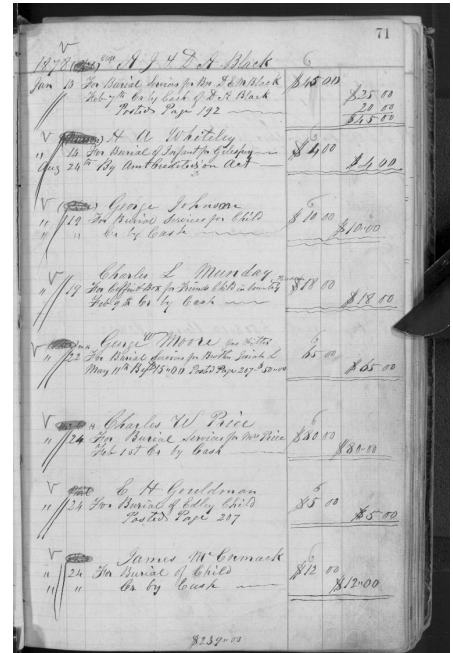 71
1878 A J & D H Black
Jan 13 For Burial Services for Bro. D. E. M Black $45 00
Feb 7th Cr by Cash of D H Black $25 00
Posted Page 192 20 00
$45.00
H A Whiteley
" 14 For Burial of Infant for $4 00
Aug 24th By Amt Credited on Act $4 00
George Johnson
" 19 For Burial Services for Child $10 00
" " Cr by Cash $10.00
Charles L Munday
" 19 For Coffin & Box for Child in Country $18 00
Feb 9th Cr by Cash $18 00
George W Moore
" 22 For Burial Services for Brother 65 00
May 11th By $15.00 Posted Page 207 50.00 $65 00
Charles W Price
" 24 For Burial Services for Mrs Price $80 00
Feb 1st Cr by Cash $80.00
C H Gouldman
" 24 For Burial of Edley Child $5 00
Posted Page 207 $5.00
James McCormack
" 24 For Burial of Child $12 00
" " Cr by Cash $12.00
$239.00